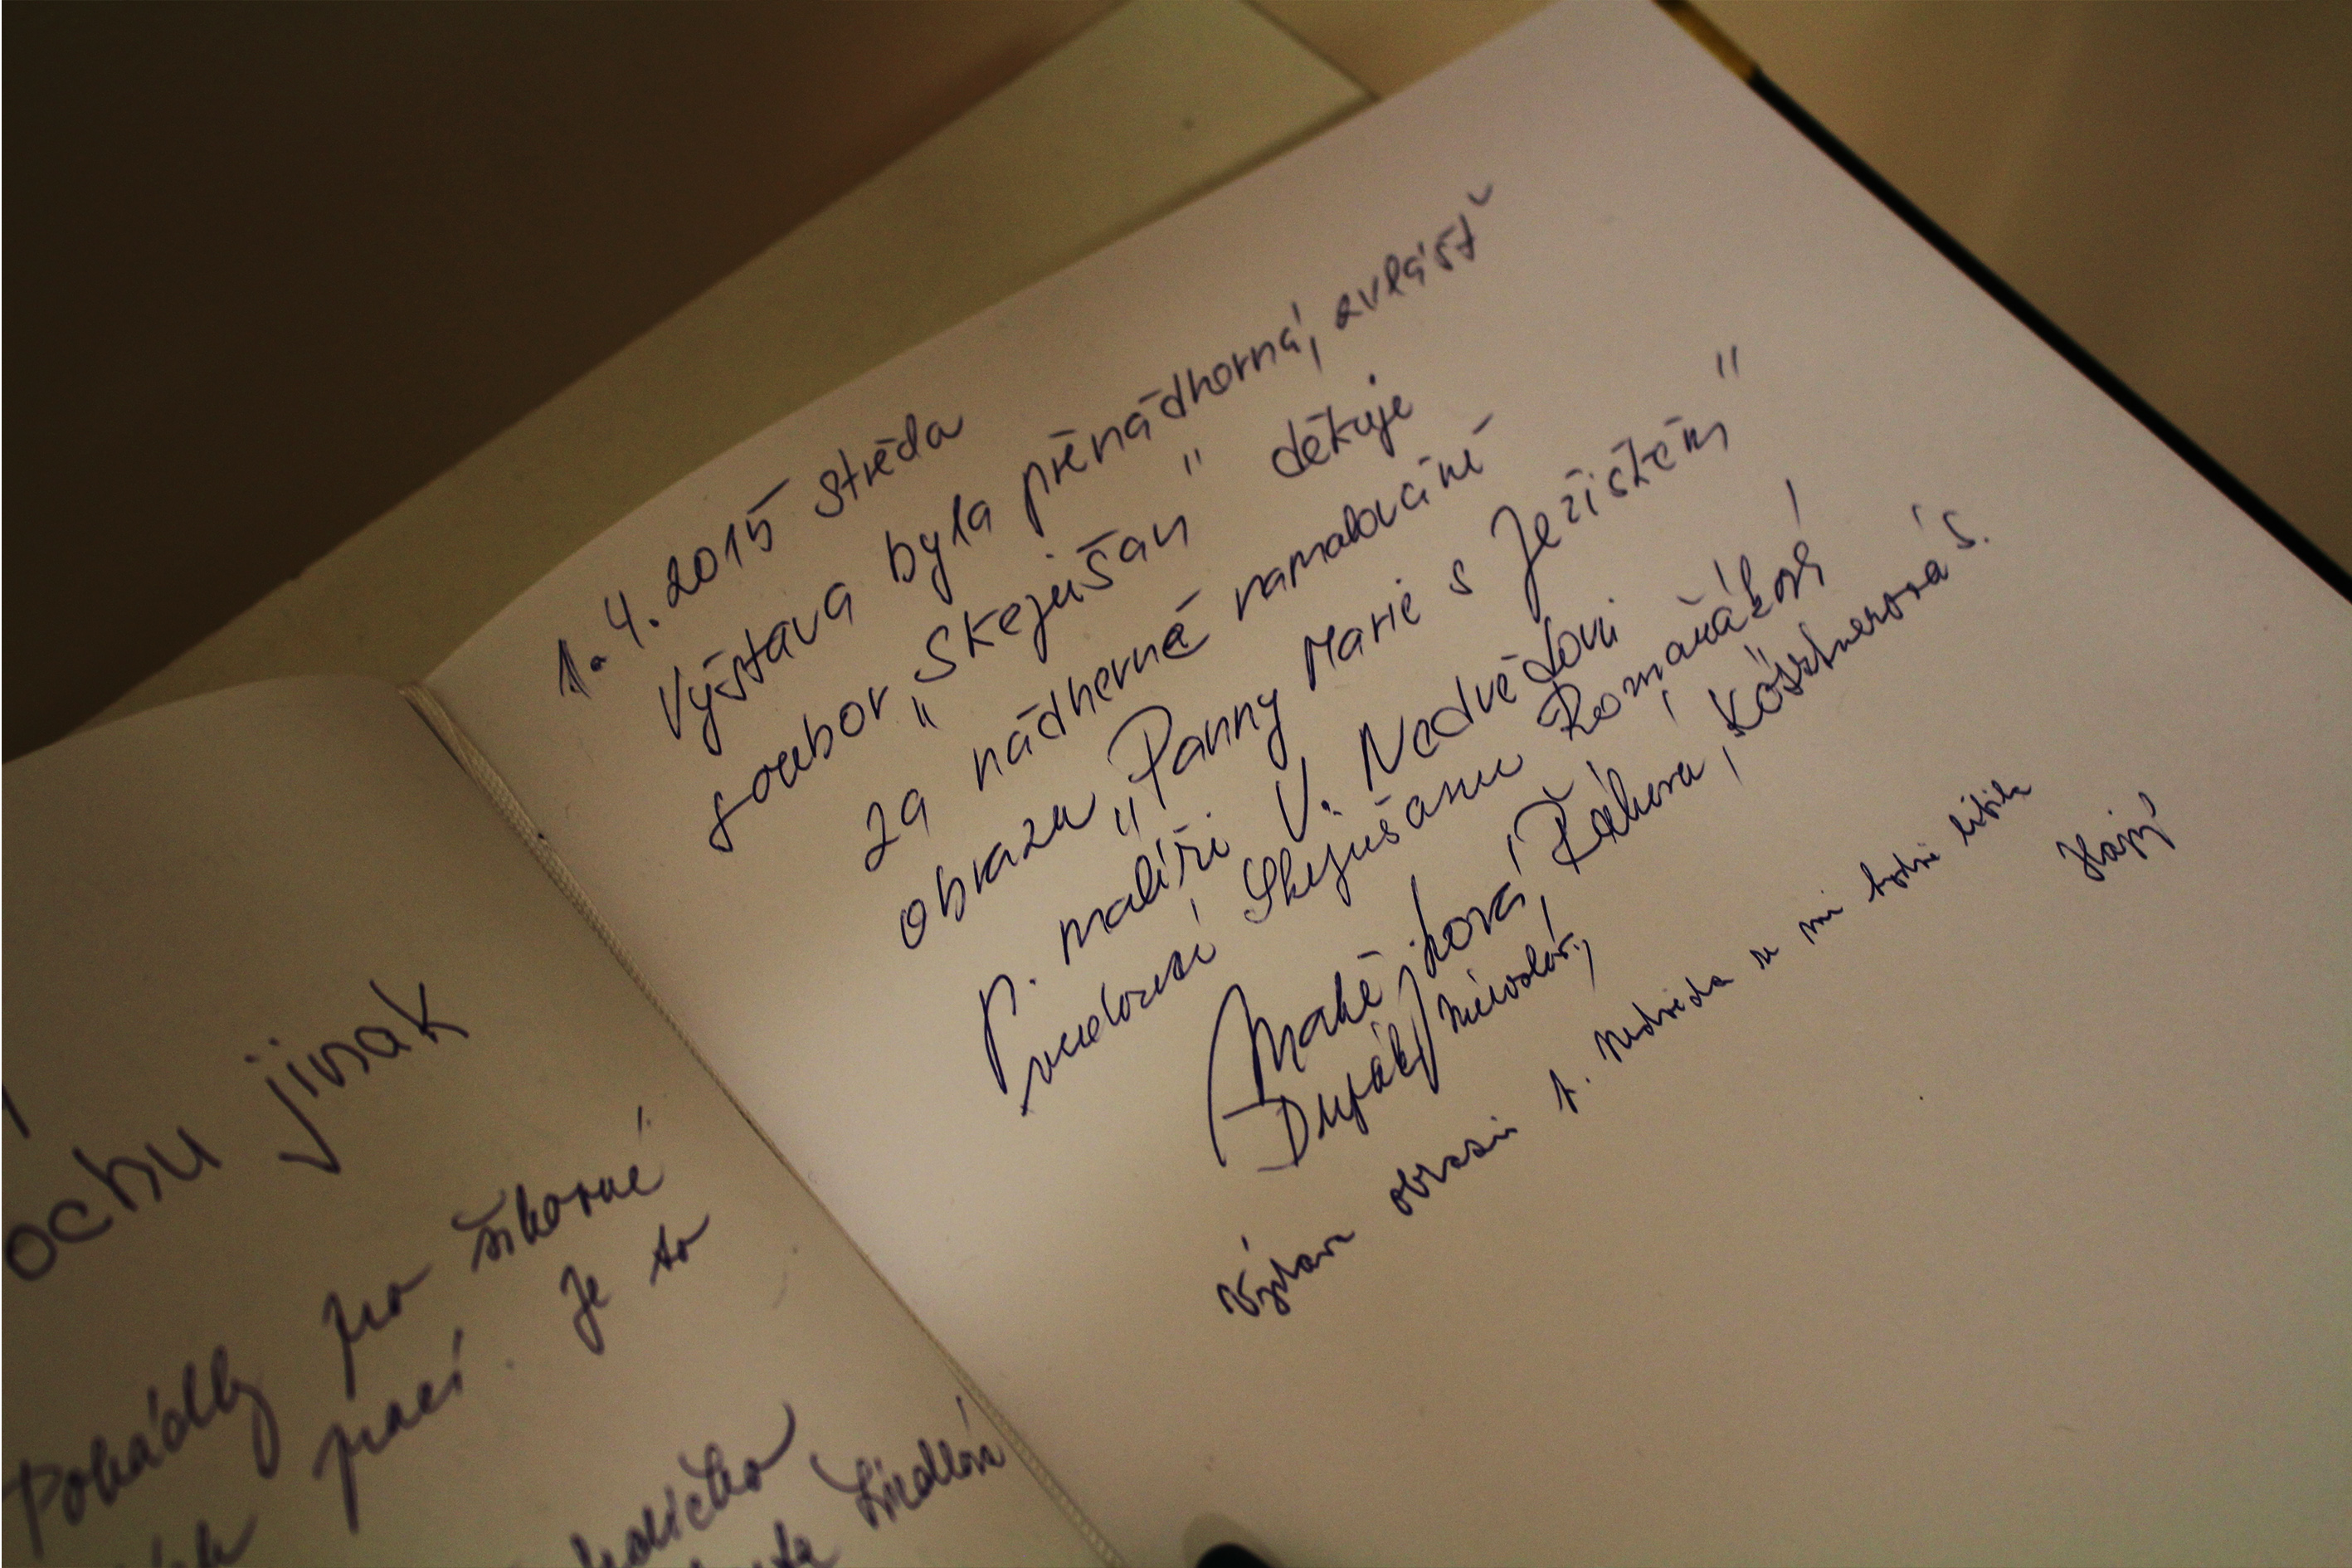 ochu jinak
Pohádky pro šikovné
prací. Je to
1. 4. 2015 středa
Výstava byla přenádherná, zvlášť
soubor „Skejušan" děkuje
za nádherné namalování
obrazu „Panny Marie s Ježíškem"
p. malíři V. Nedvědovi
vedoucí Skejušanu Romaňáková
Řeháková, Köstnerová S.
Dupák Miroslav,
Výstava obrazů p. Nedvěda se mi hodně líbila
Hájý